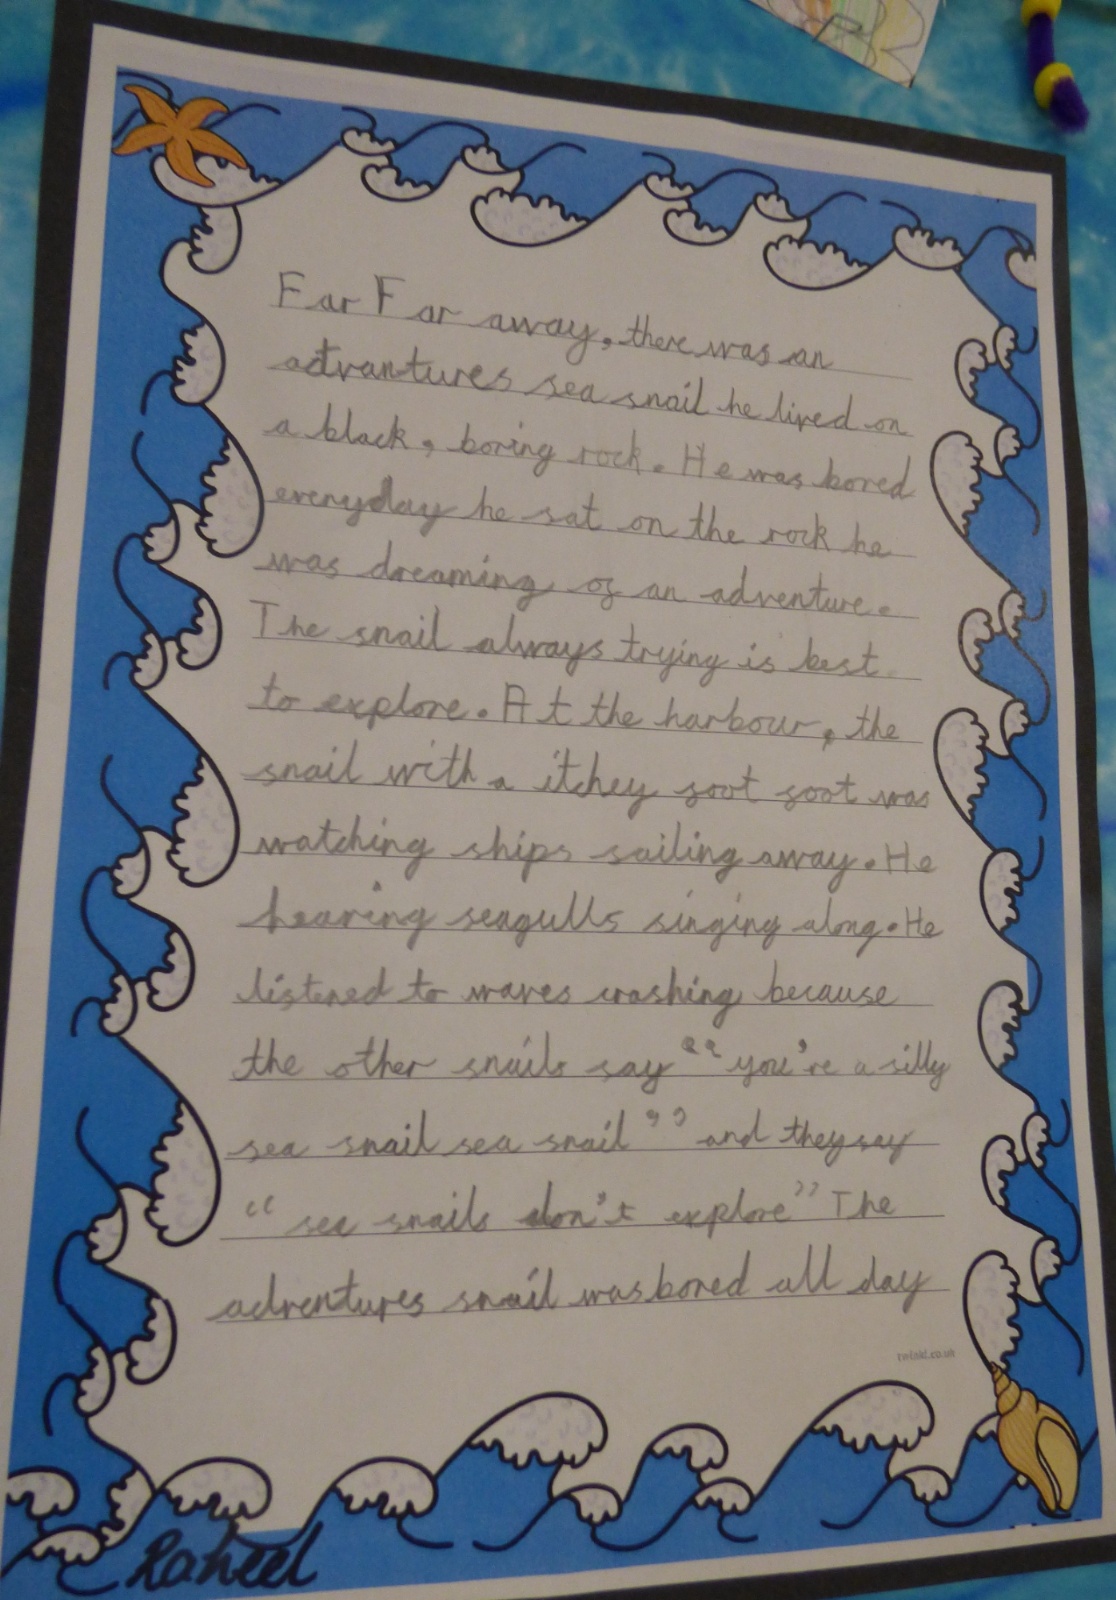 Far Far away, there was an
advantures sea snail he lived on
a black, boring rock. He was bored
everyday he sat on the rock he
was dreaming of an adventure.
The snail always trying is best
to explore. At the harbour, the
snail with a itchey foot foot was
watching ships sailing away. He
hearing seagulls singing along. He
listened to waves crashing because
the other snails say “you're a silly
sea snail sea snail” and they say
“sea snails don't explore” The
adventures snail was bored all day
twinkl.co.uk
Raheel